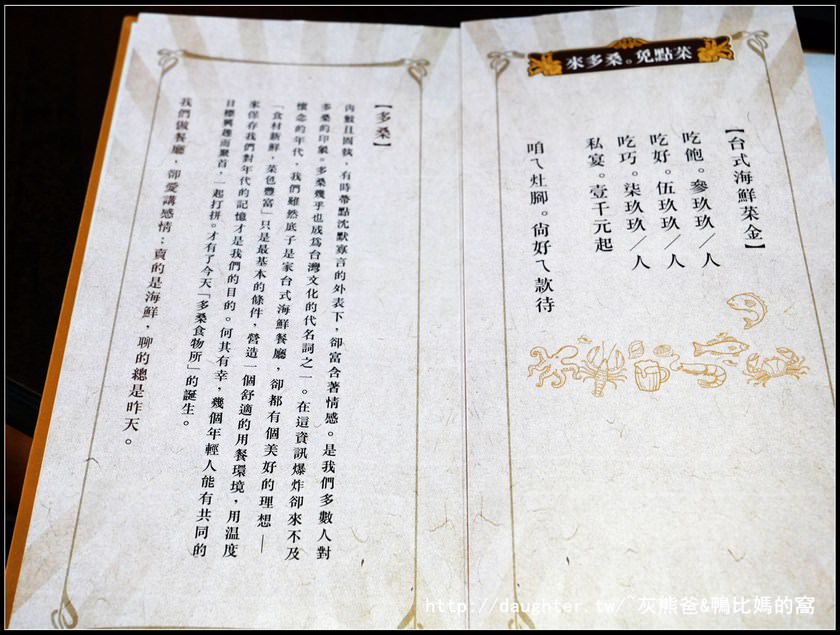 來多桑。免點菜
【台式海鮮菜金】
吃飽。參玖玖／人
吃好。伍玖玖／人
吃巧。柒玖玖／人
私宴。壹千元起
咱ㄟ灶腳。尚好ㄟ款待
【多桑】
內斂且固執，有時帶點沈默寡言的外表下，卻富含著情感。是我們多數人對
多桑的印象。多桑幾乎也成為台灣文化的代名詞之一。在這資訊爆炸卻來不及
懷念的年代，我們雖然底子是家台式海鮮餐廳，卻都有個美好的理想—
「食材新鮮，菜色豐富」只是最基本的條件，營造一個舒適的用餐環境，用溫度
來保存我們對年代的記憶才是我們的目的。何其有幸，幾個年輕人能有共同的
目標興趣而聚首，一起打拼。才有了今天「多桑食物所」的誕生。
我們做餐廳，卻愛講感情；賣的是海鮮，聊的總是昨天。
http://daughter.tw/~灰熊爸&鴨比媽的窩